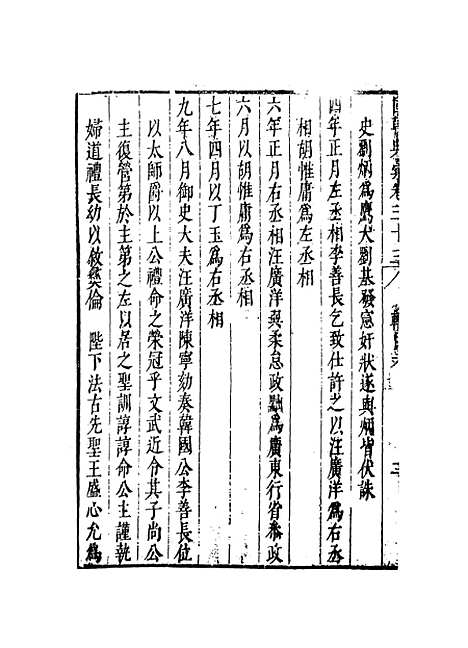 國朝典彙卷三十三
史劉炳為鷹犬劉基發憲奸狀遂與炳皆伏誅
四年正月左丞相李善長乞致仕許之以汪廣洋為右丞
相胡惟庸為左丞相
六年正月右丞相汪廣洋與柔怠政黜為廣東行省參政
六月以胡惟庸為右丞相
七年四月以丁玉為右丞相
九年八月御史大夫汪廣洋陳寧劾奏韓國公李善長位
以太師爵以上公禮命之榮冠乎文武近令其子尚公
主復營第於主第之左以居之聖訓諄諄命公主謹執
婦道禮長幼以敘彝倫 陛下法古先聖王盛心允為